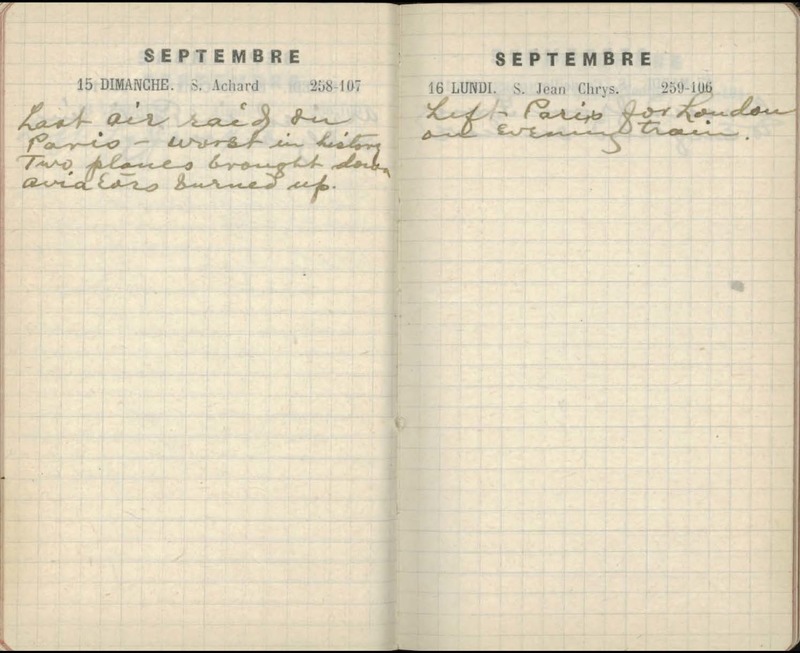 SEPTEMBRE
15 DIMANCHE. S. Achard 258-107
Last air raid on
Paris - worst in history
Two planes brought down
aviators burned up.
SEPTEMBRE
16 LUNDI. S. Jean Chrys. 259-106
Left Paris for London
on evening train.